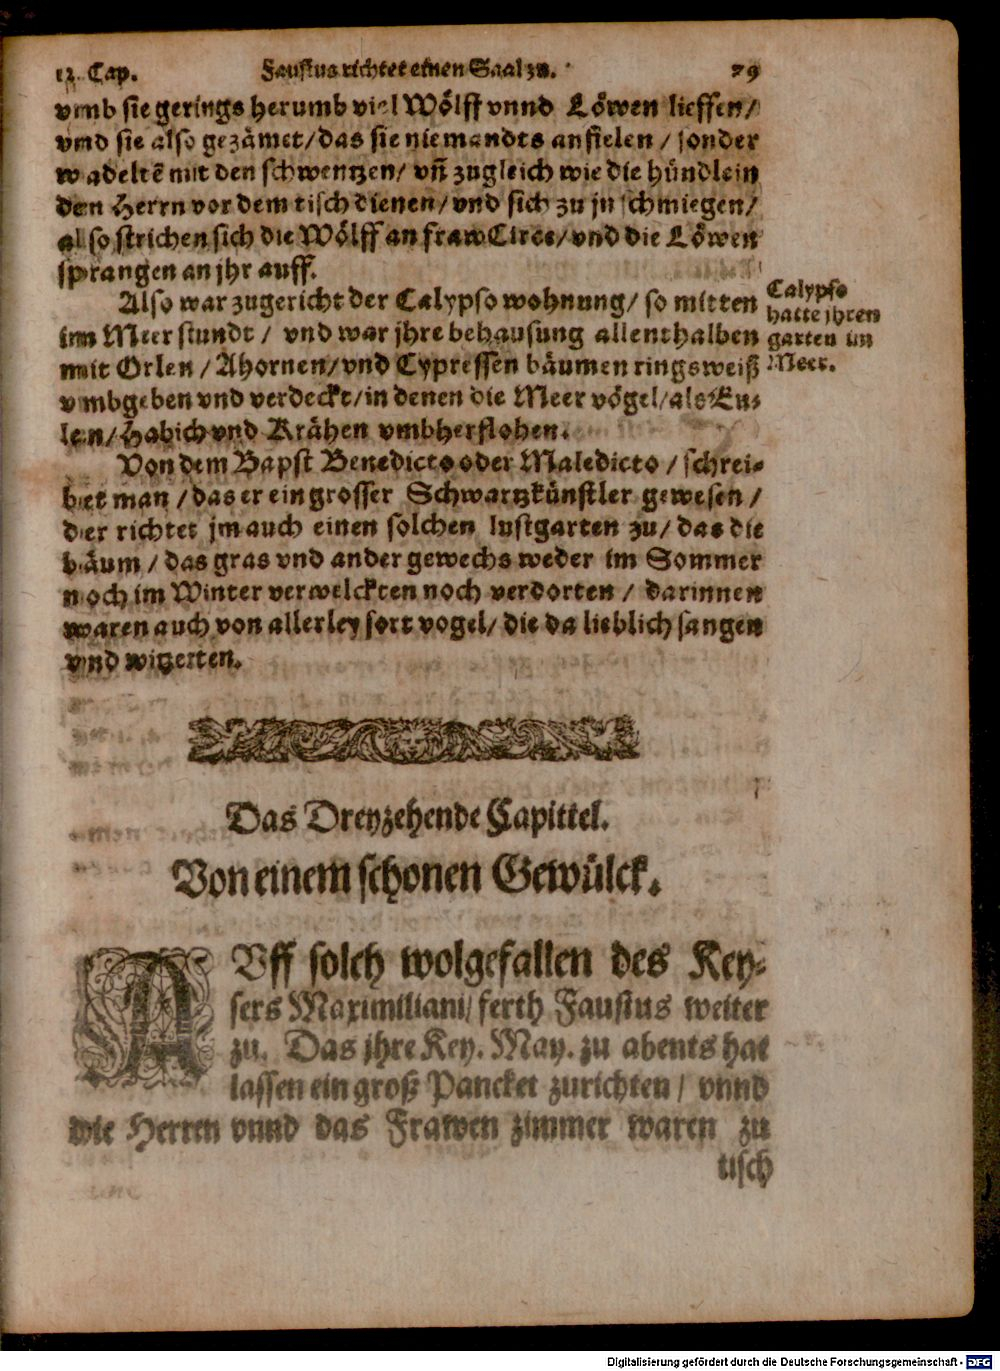 12. Cap. Faustus richtet einen Saal zu. 79
vmb sie gerings herumb viel Wölff vnnd Löwen lieffen/
vnd sie also gezämet/das sie niemandts anfielen / sonder
wadeltē mit den schwentzen/ vn̄ zugleich wie die hündlein
den Herrn vor dem tisch dienen/vnd sich zu jn schmiegen/
also strichen sich die Wölff an fraw Circe/vnd die Löwen
sprangen an jhr auff.
Also war zugericht der Calypso wohnung/ so mitten
im Meer stundt / vnd war jhre behausung allenthalben
mit Orlen /Ahornen/vnd Cypressen bäumen ringsweiß
vmbgeben vnd verdeckt/in denen die Meer vögel/als Eu-
len/Habich vnd Krähen vmbherflohen.
Calypso
hatte jhren
garten im
Meer.
Von dem Bapst Benedicto oder Maledicto / schrei-
bet man /das er ein grosser Schwartzkünstler gewesen /
der richtet jm auch einen solchen lustgarten zu/ das die
bäum / das gras vnd ander gewechs weder im Sommer
noch im Winter verwelckten noch verdorten / darinnen
waren auch von allerley sort vogel/ die da lieblich sangen
vnd witzerten.
Das Dreyzehende Capittel.
Von einem schonen Gewülck.
AVff solch wolgefallen des Key-
sers Maximiliani/ ferth Faustus weiter
zu. Das jhre Key. May. zu abents hat
lassen ein groß Pancket zurichten / vnnd
die Herren vnnd das Frawen zimmer waren zu
tisch
Digitalisierung gefördert durch die Deutsche Forschungsgemeinschaft - DFG